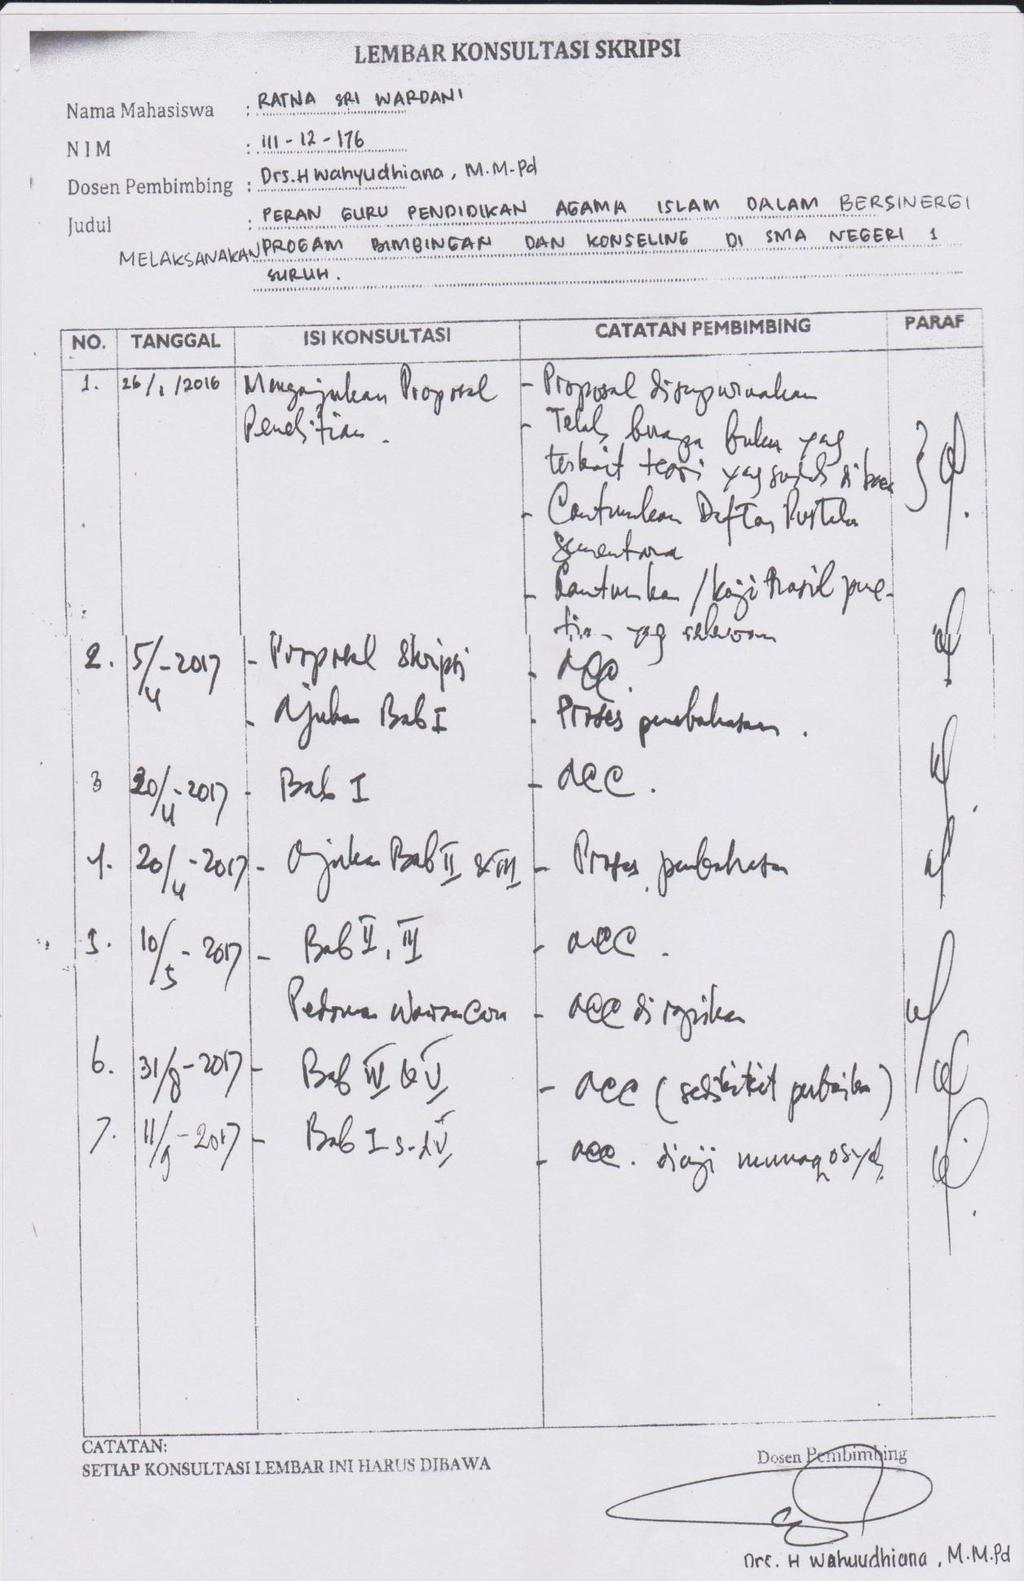 LEMBAR KONSULTASI SKRIPSI
Nama Mahasiswa : RATNA SRI WARDANI
NIM : 111-12-176
Dosen Pembimbing : Drs.H Wahyudhiana, M.M.Pd
Judul : PERAN GURU PENDIDIKAN AGAMA ISLAM DALAM BERSINERGI
MELAKSANAKAN PROGAM BIMBINGAN DAN KONSELING DI SMA NEGERI 1
SURUH.
NO. TANGGAL ISI KONSULTASI CATATAN PEMBIMBING PARAF
1. 26/1/2016 Mengajukan Proposal - Proposal disempurnakan
Penelitian. - Telah buku yag
terkait teori yag sudah di baca
- Cantumkan Daftar Pustaka
Sementara
- Cantumkan /kaji hasil pene-
litian yag relevan
2. 5/4-2017 - Proposal Skripsi - acc.
- Ajukan Bab I - Proses pembahasan.
3 20/4-2017 - Bab I - acc.
4. 20/4-2017 - Ajukan Bab II & III - Proses pembahasan
5. 10/5-2017 - Bab II, III - acc.
Pedoman Wawancara - acc dirapikan
6. 31/8-2017 - Bab IV & V - acc (sedikit perbaikan)
7. 11/9-2017 - Bab I s.d V - acc. diuji munaqosyah
CATATAN:
SETIAP KONSULTASI LEMBAR INI HARUS DIBAWA
Dosen Pembimbing
Drs. H Wahyudhiana, M.M.Pd